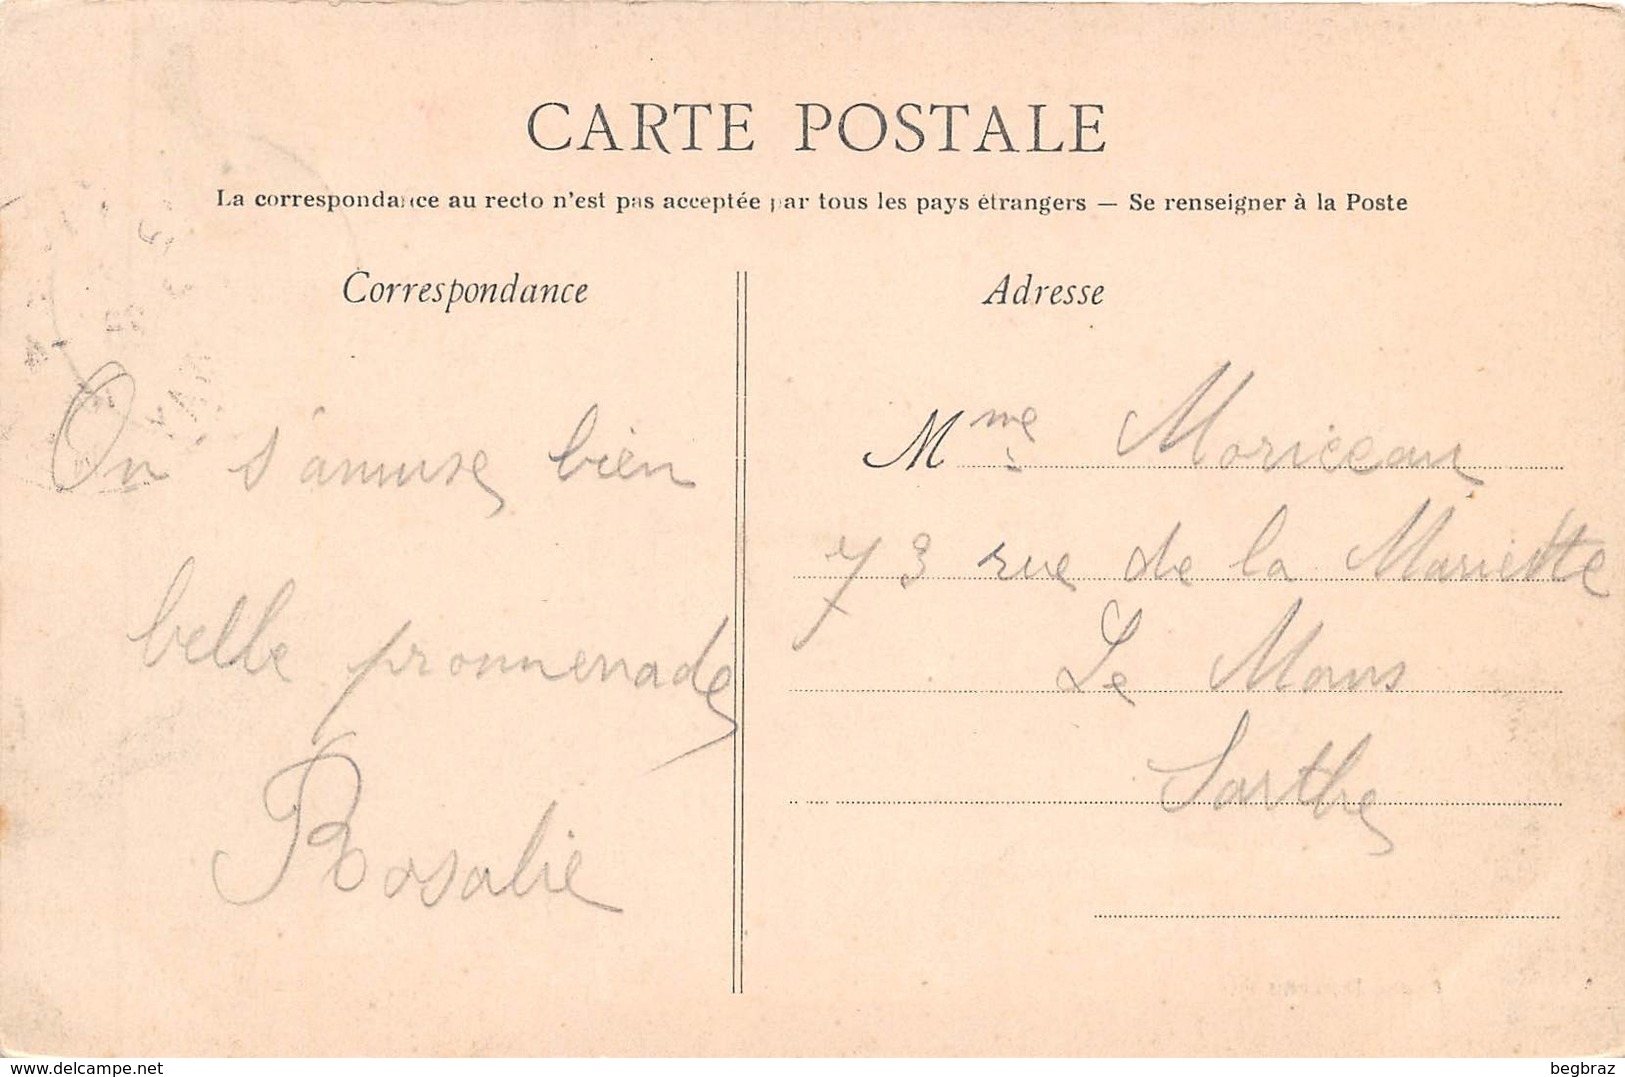 CARTE POSTALE
La correspondance au recto n'est pas acceptée par tous les pays étrangers — Se renseigner à la Poste
Correspondance
On s'amuse bien
belle promenade
Rosalie
Adresse
Mme Moriceau
73 rue de la Mariette
Le Mans
Sarthe
delcampe.net
begbraz